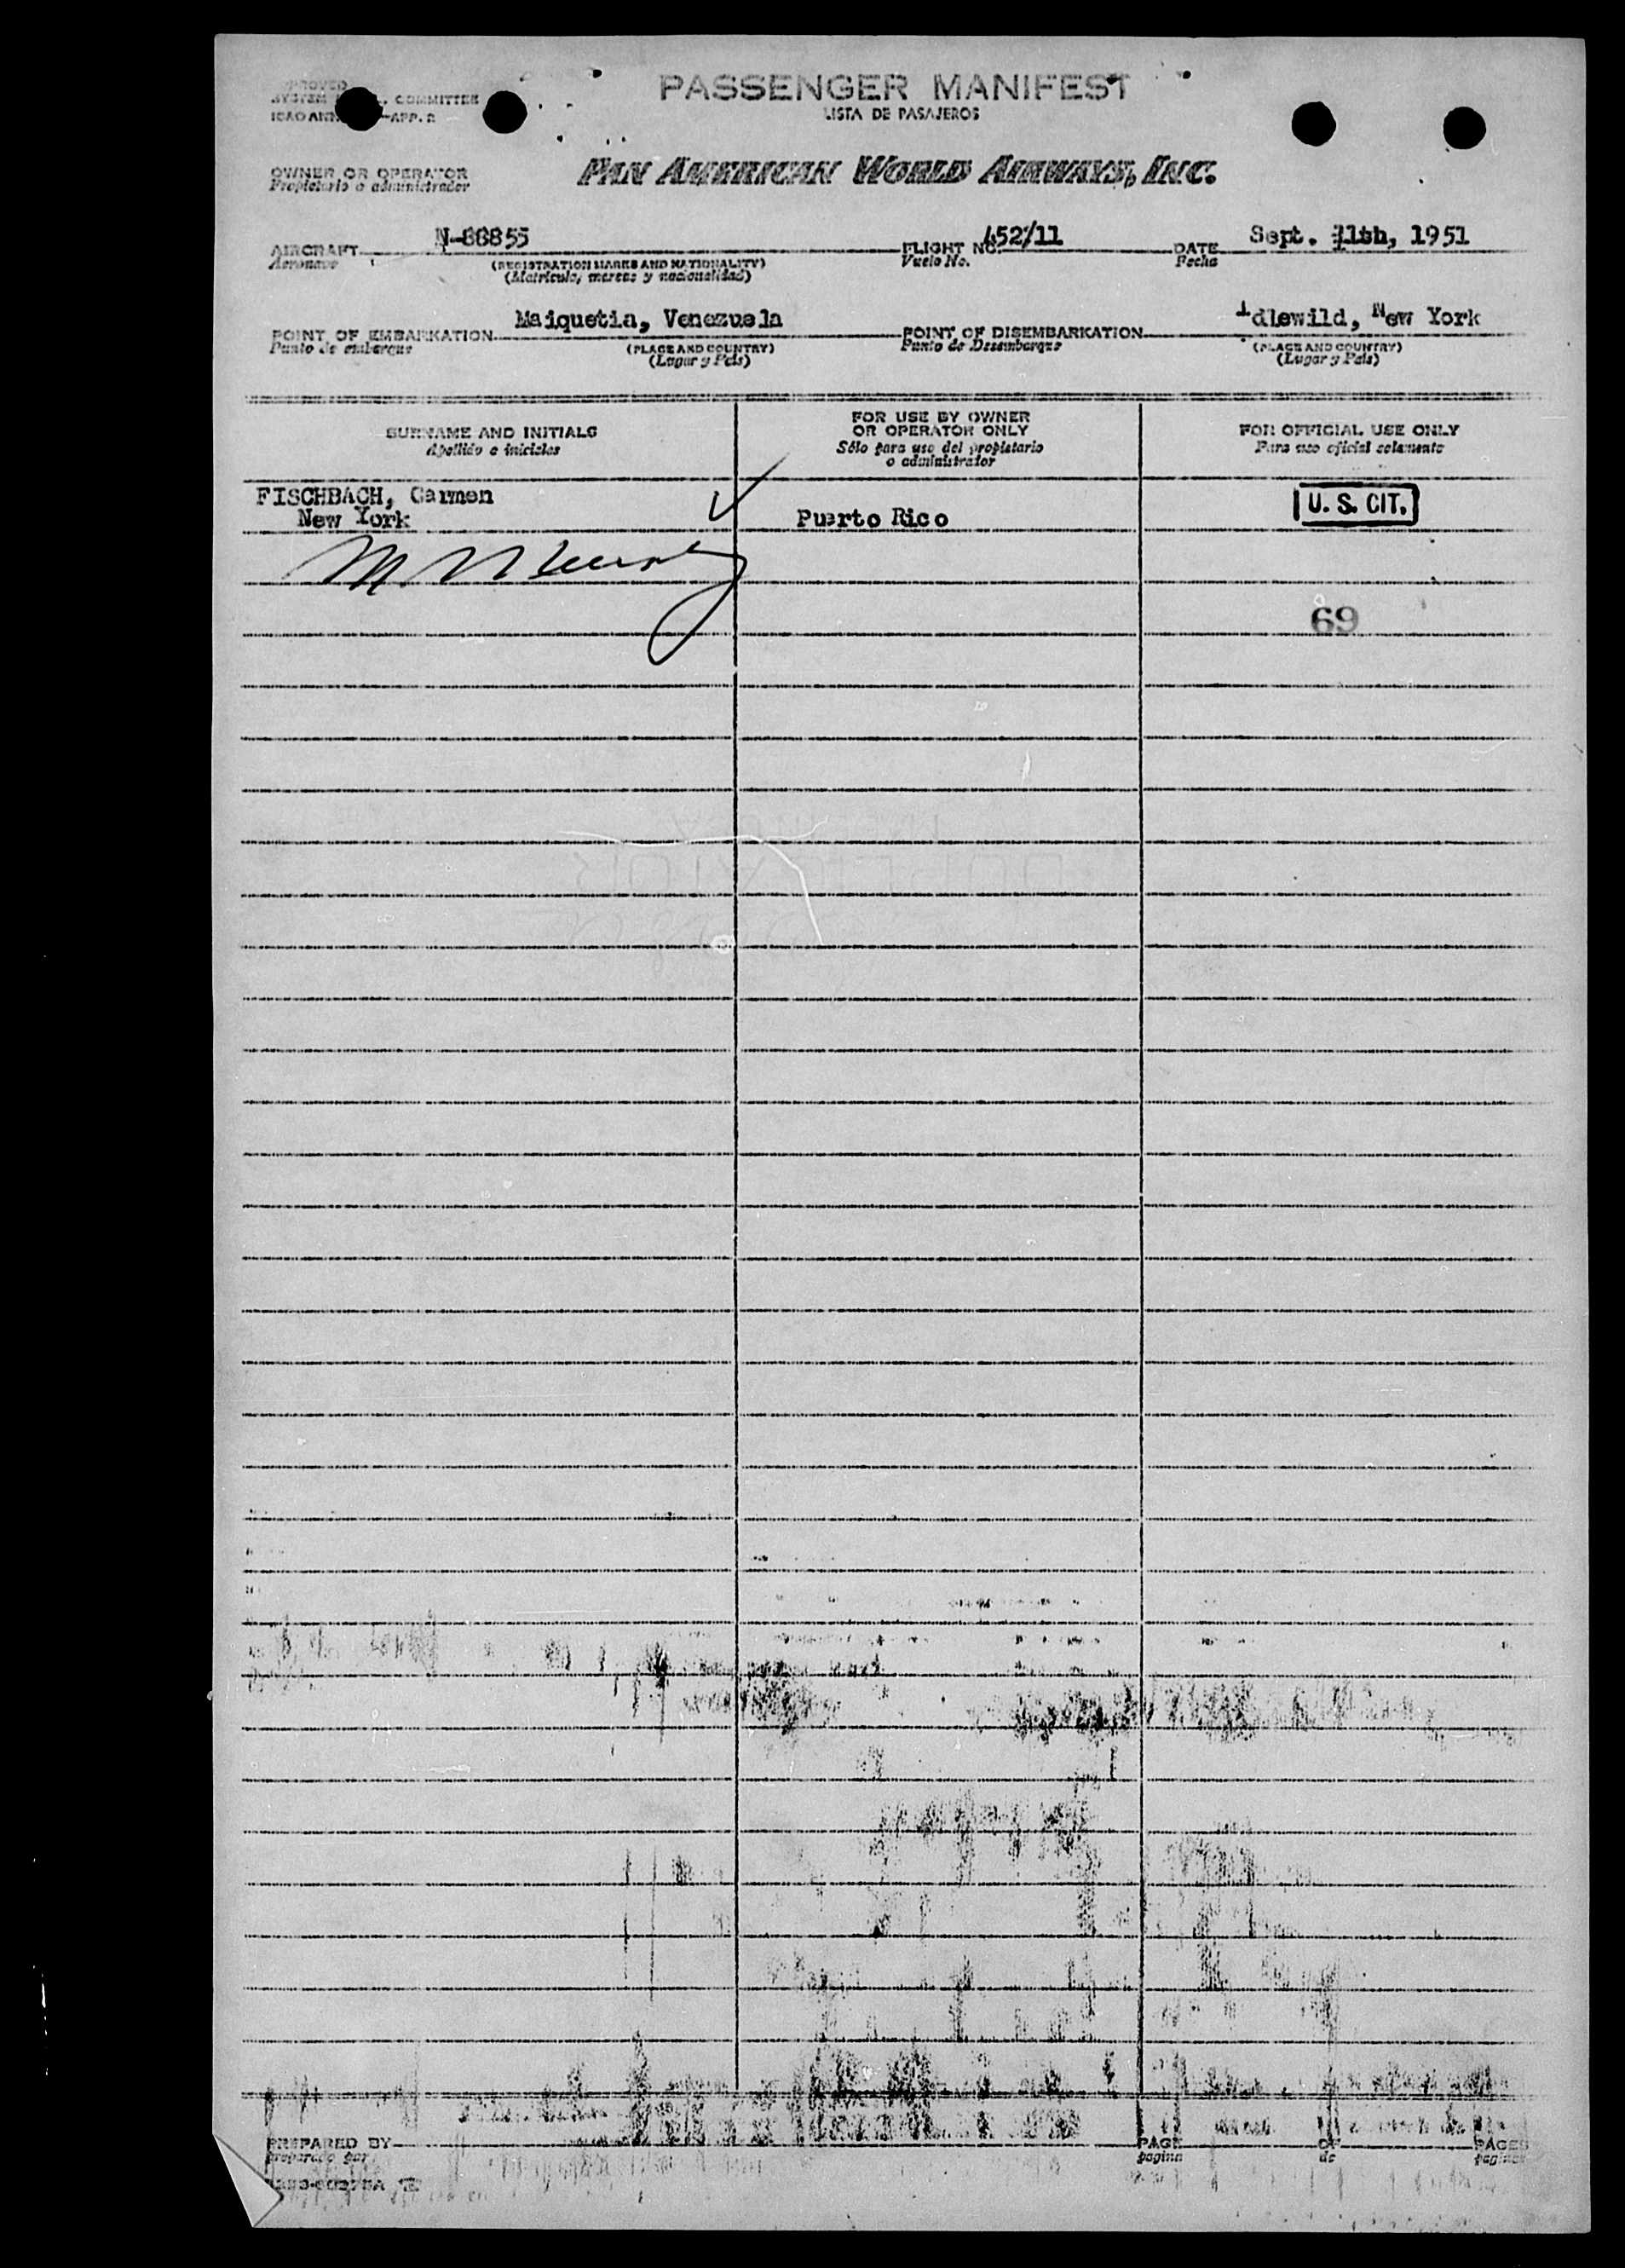 PASSENGER MANIFEST
LISTA DE PASAJEROS
COMMITTEE
APP. 2
OWNER OR OPERATOR
Propietario o administrador
PAN AMERICAN WORLD AIRWAYS, INC.
AIRCRAFT N-88855 FLIGHT NO. 452/11 DATE Sept. 11th, 1951
Aeronave (REGISTRATION MARKS AND NATIONALITY) Vuelo No. Fecha
(Matrícula, marcas y nacionalidad)
POINT OF EMBARKATION Maiquetia, Venezuela POINT OF DISEMBARKATION Idlewild, New York
Punto de embarque (PLACE AND COUNTRY) Punto de Desembarque (PLACE AND COUNTRY)
(Lugar y País) (Lugar y País)
SURNAME AND INITIALS FOR USE BY OWNER OR OPERATOR ONLY FOR OFFICIAL USE ONLY
Apellido e iniciales Sólo para uso del propietario o administrador Para uso oficial solamente
FISCHBACH, Carmen U. S. CIT.
New York Puerto Rico
69
PREPARED BY PAGE OF PAGES
Preparado por pagina de paginas